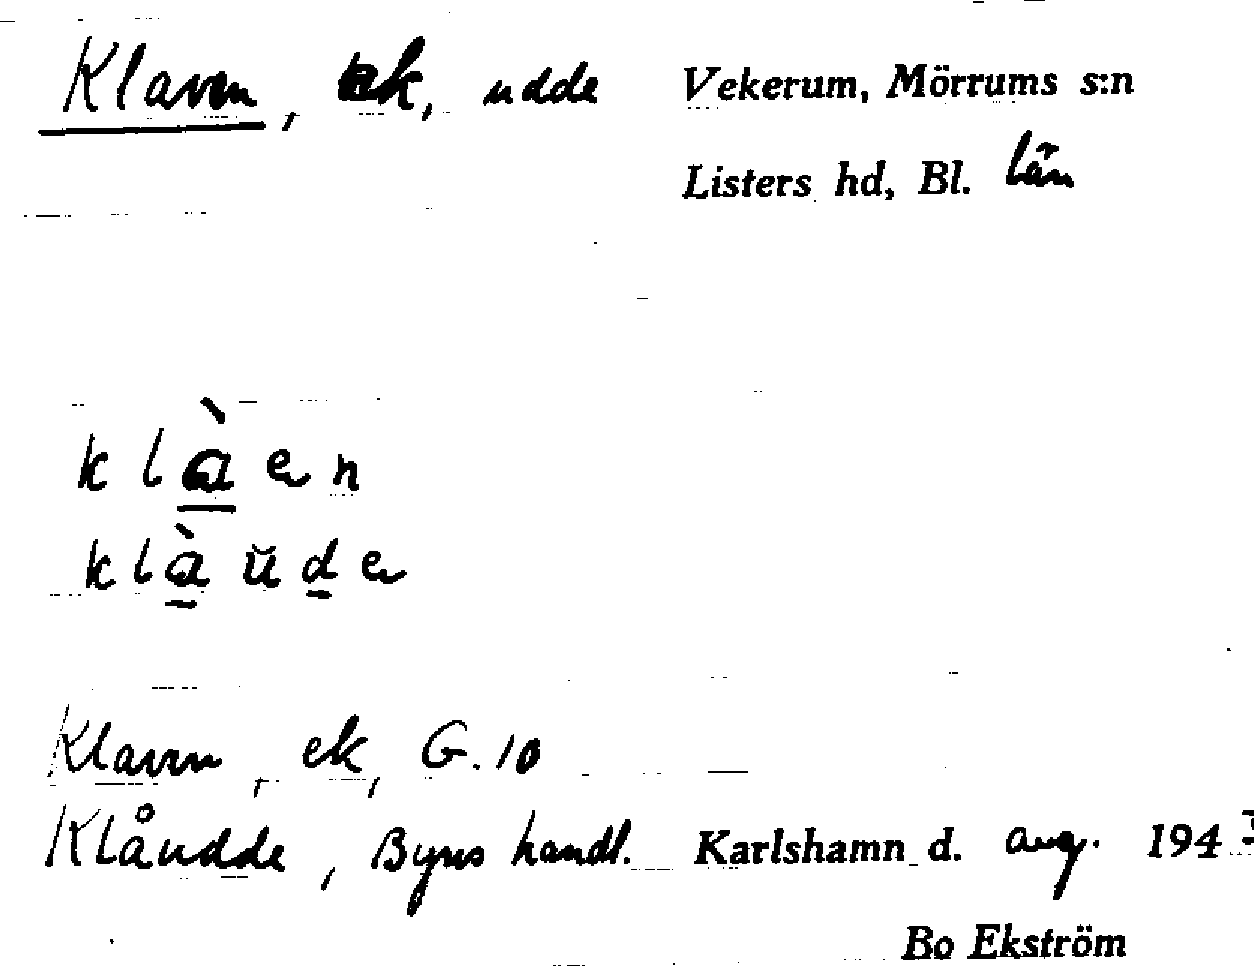 Klaven, ek, udde Vekerum, Mörrums s:n
Listers hd, Bl. län
klàen
klàŭde
Klaven, ek, G. 10
Klåudde, Byns handl. Karlshamn d. aug. 194
Bo Ekström